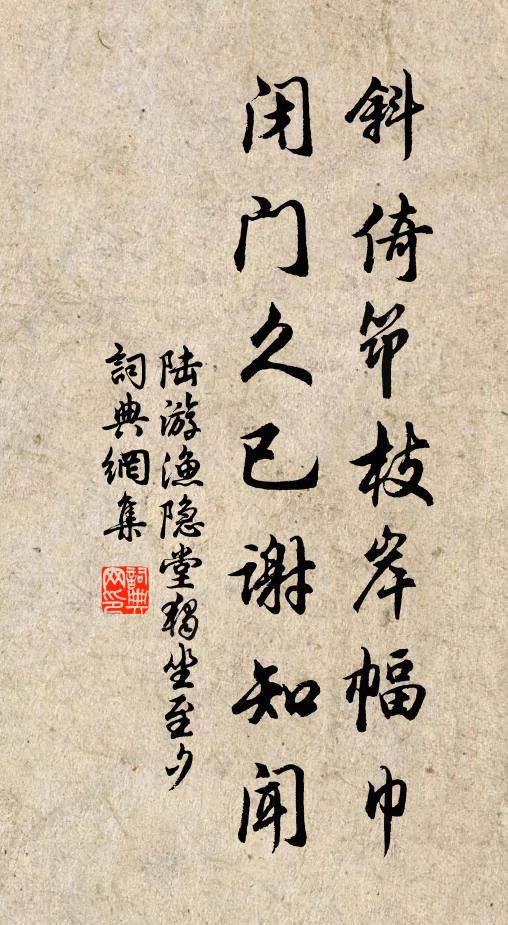 斜倚笻枝岸幅巾
闭门久已谢知闻
陆游渔隐堂独坐至夕
詞典網集
詞典网印